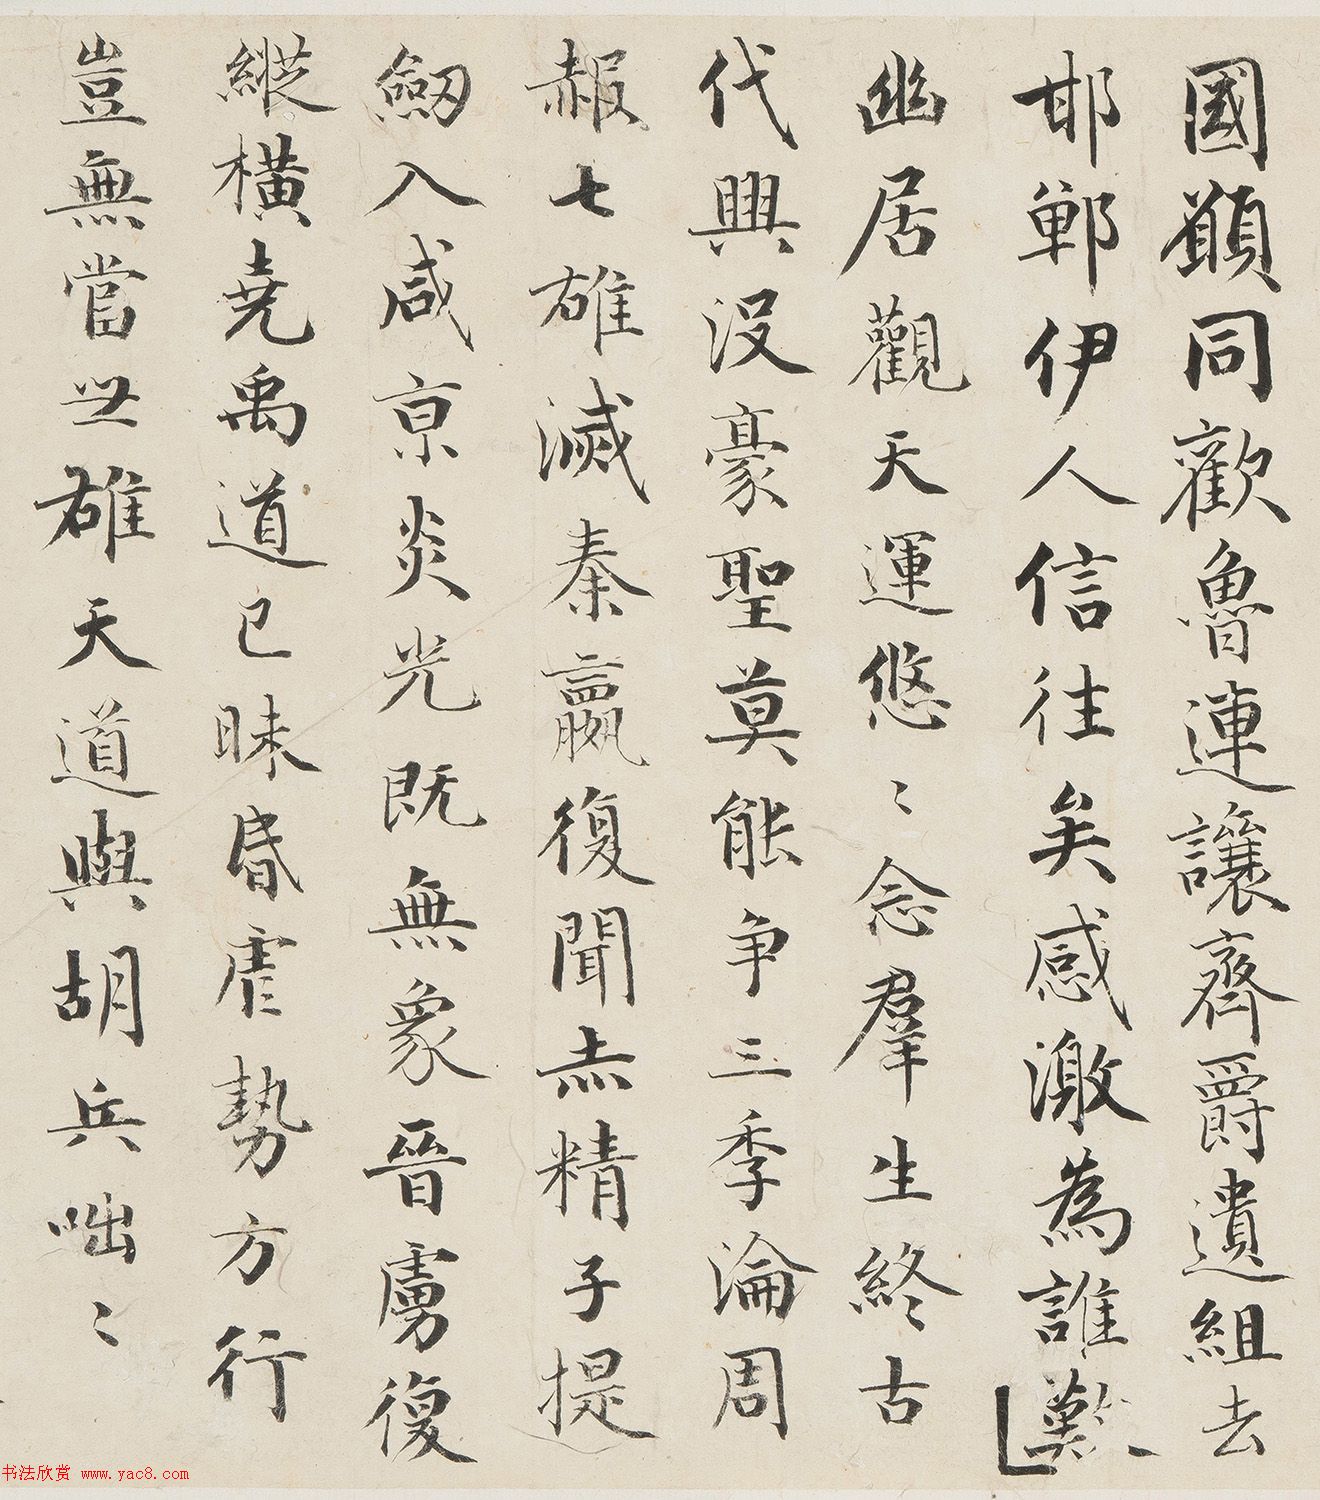 國願同歡魯連讓齊爵遺組去
邯鄲伊人信往矣感激為誰歎
幽居觀天運悠〻念羣生終古
代興没豪聖莫能争三季淪周
赧七雄滅秦嬴復聞赤精子提
劒入咸京炎光既無象晉虜復
縱橫堯禹道已昧昏虐勢方行
豈無當世雄天道與胡兵咄〻
书法欣赏 www.yac8.com